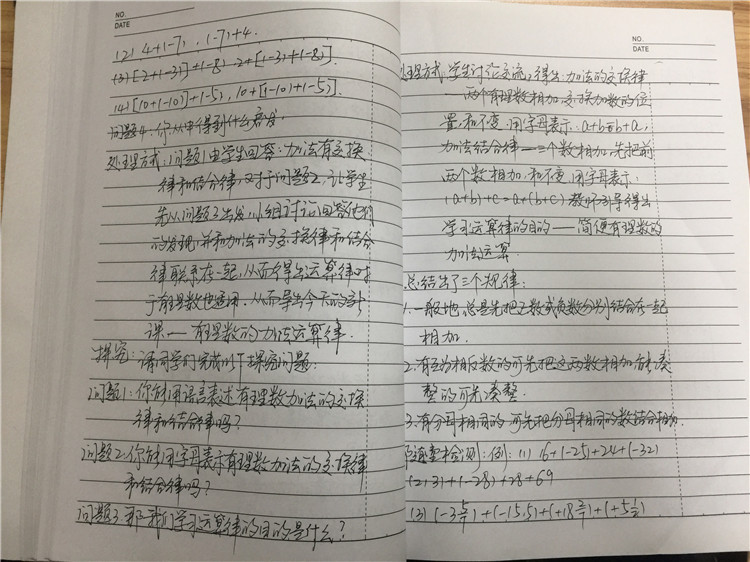 NO.
DATE
(2) 4+(-7), (-7)+4.
(3) [2+(-3)]+(-8), 2+[(-3)+(-8)].
(4) [10+(-10)]+(-5), 10+[(-10)+(-5)].
问题4:你从中得到什么启发?
处理方式:问题1由学生回答:加法有交换
律和结合律,对于问题2,让学生
先从问题3出发,小组讨论回答他们
的发现,并和加法的交换律和结合
律联系在一起,从而得出运算律对
于有理数也适用.从而导出今天的新
课——有理数的加法运算律.
探究:请同学们完成以下探究问题:
问题1:你能用语言表述有理数加法的交换
律和结合律吗?
问题2:你能用字母表示有理数加法的交换律
和结合律吗?
问题3:那我们学习运算律的目的是什么?
NO.
DATE
处理方式:学生讨论交流,得出:加法的交换律
——两个有理数相加,交换加数的位
置,和不变.用字母表示:a+b=b+a,
加法结合律——三个数相加,先把前
两个数相加,和不变,用字母表示:
(a+b)+c=a+(b+c) 教师引导得出
学习运算律的目的——简便有理数的
加法运算.
总结出了三个规律:
1.一般地,总是先把正数或负数分别结合在一起
相加.
2.有互为相反数的可先把这两数相加,能凑
整的可先凑整.
3.有分母相同的,可先把分母相同的数结合相加.
随堂检测:例:(1) 16+(-25)+24+(-32)
(2) 31+(-28)+28+69